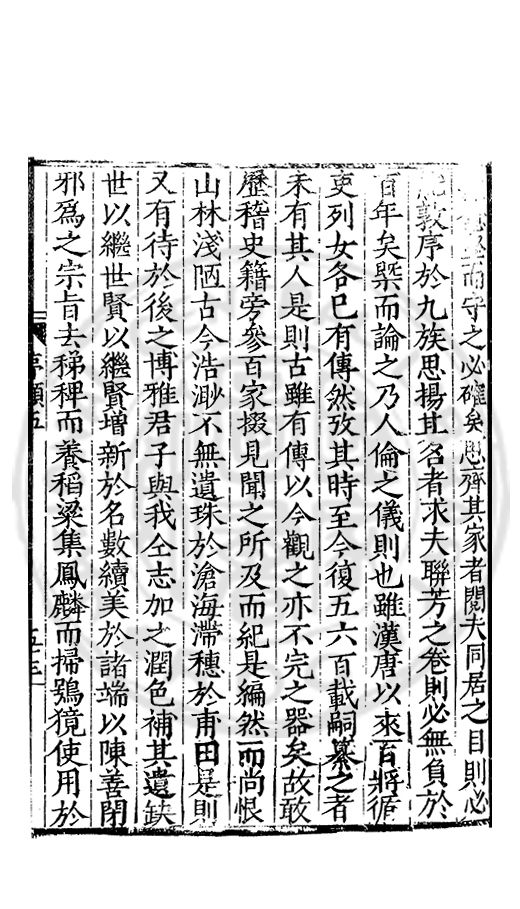 而守之必確矣思齊其家者閱夫同居之目則必
敦序於九族思揚其名者求夫聯芳之卷則必無負於
百年矣槩而論之乃人倫之儀則也雖漢唐以來百將循
吏列女各已有傳然攷其時至今復五六百載嗣纂之者
未有其人是則古雖有傳以今觀之亦不完之器矣故敢
歷稽史籍旁參百家掇見聞之所及而紀是編然而尚恨
山林淺陋古今浩渺不無遺珠於滄海滯穗於甫田是則
又有待於後之博雅君子與我仝志加之潤色補其遺缺
世以繼世賢以繼賢增新於名數續美於諸端以陳善閉
邪爲之宗旨去稊稗而養稻粱集鳳麟而掃鴞獍使用於